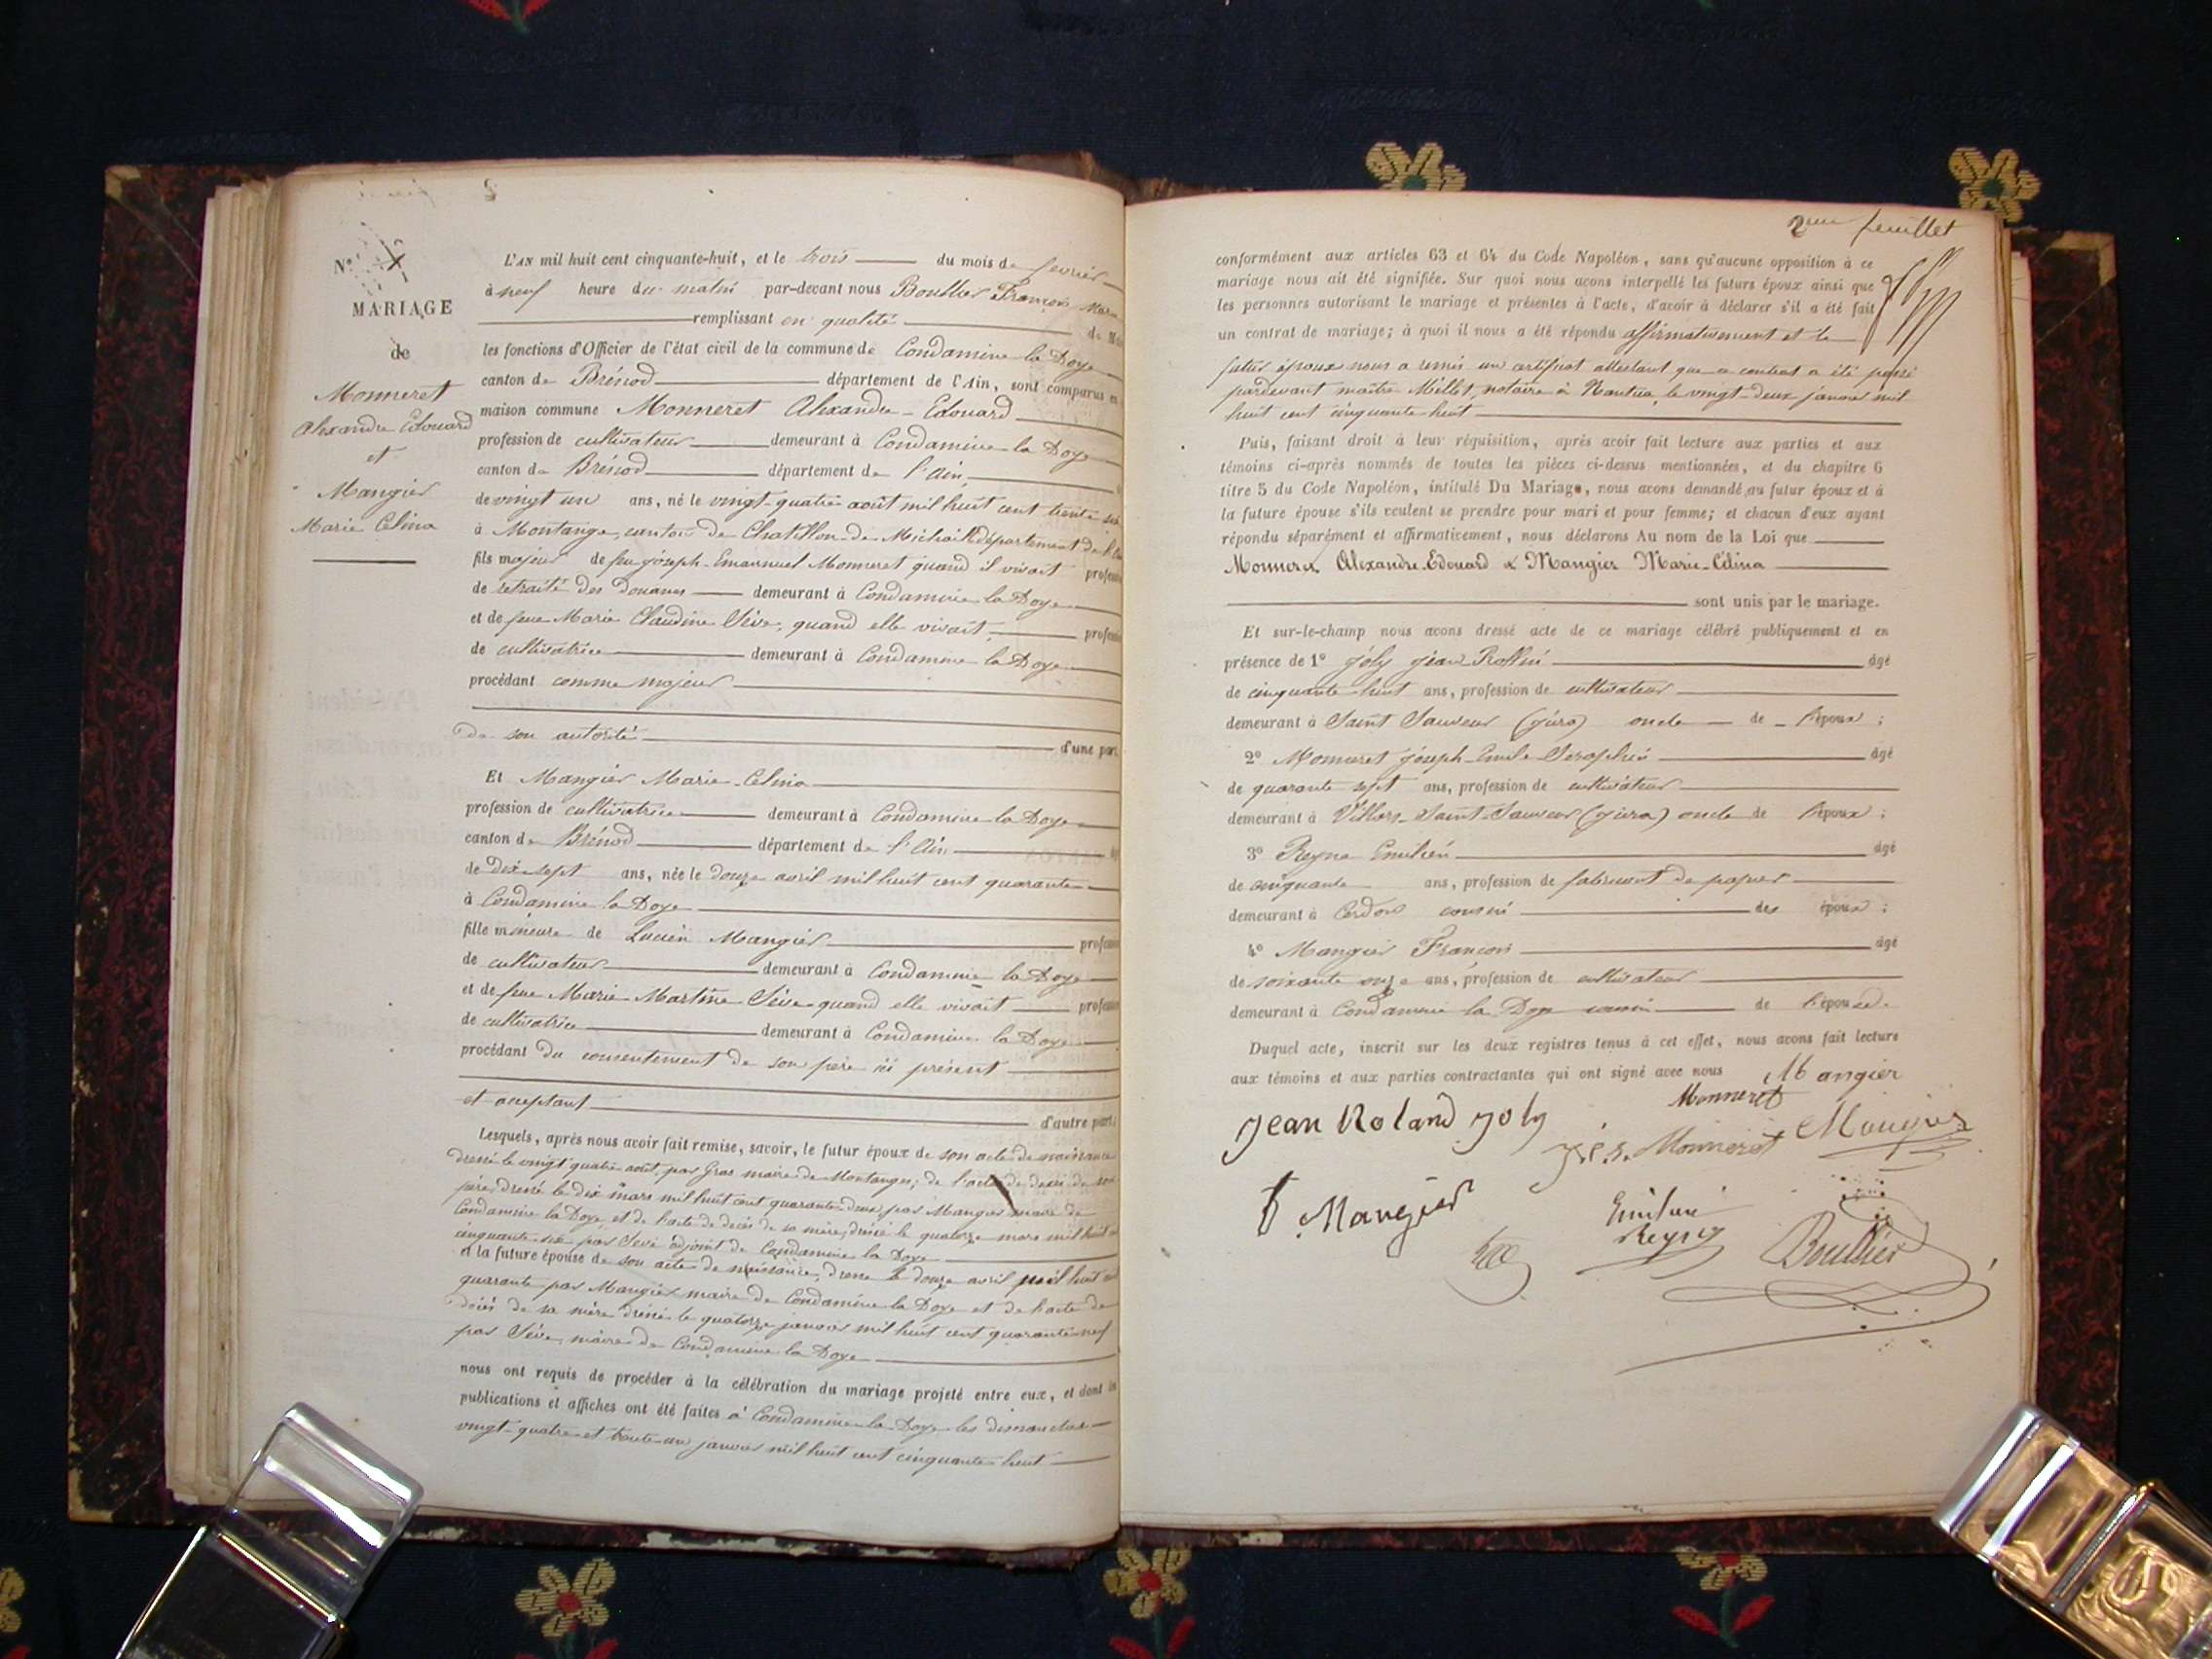 N°
MARIAGE
de
Monneret
Alexandre Edouard
et
Mangier
Marie Celina
L'AN mil huit cent cinquante-huit, et le trois du mois de fevrier
à neuf heure du matin par-devant nous Bouillier François Marie
remplissant en qualité de
les fonctions d'Officier de l'état civil de la commune de Condamine la Doye
canton de Brénod département de l'Ain, sont comparus en
maison commune Monneret Alexandre-Edouard
profession de cultivateur demeurant à Condamine la Doye
canton de Brénod département de l'Ain,
de vingt un ans, né le vingt-quatre août mil huit cent trente six
à Montange, canton de Chatillon-de-Michaille département de l'Ain
fils majeur de feu joseph-Emannuel Monneret quand il vivait profession
de retraité des Douanes demeurant à Condamine la Doye
et de feue Marie Claudine Sève, quand elle vivait, profession
de cultivatrice demeurant à Condamine la Doye
procédant comme majeur
de son autorité d'une part.
Et Mangier Marie-Celina
profession de cultivatrice demeurant à Condamine la Doye
canton de Brénod département de l'Ain
de dix-sept ans, née le douze avril mil huit cent quarante
à Condamine la Doye
fille mineure de Lucien Mangier profession
de cultivateur demeurant à Condamine la Doye
et de feue Marie Martine Sève quand elle vivait profession
de cultivatrice demeurant à Condamine la Doye
procédant du consentement de son père ici présent
et acceptant d'autre part.
Lesquels, après nous avoir fait remise, savoir, le futur époux de son acte de naissance
dressé le vingt quatre août, par Gras maire de Montanges; de l'acte de décès de son
père, dressé le dix mars mil huit cent quarante-deux, par Mangier maire de
Condamine la Doye, et de l'acte de décès de sa mère, dréssé le quatorze mars mil huit cent
cinquante-six par Sève adjoint de Condamine la Doye
et la future épouse de son acte de naissance, dressé le douze avril mil huit cent
quarante par Mangier maire de Condamine la Doye et de l'acte de
décès de sa mère dréssé le quatorze janvier mil huit cent quarante-neuf
par Sève, maire de Condamine la Doye
nous ont requis de procéder à la célébration du mariage projeté entre eux, et dont les
publications et affiches ont été faites à Condamine la Doye les dimanches
vingt-quatre et trente-un janvier mil huit cent cinquante-huit
2me feuillet
conformément aux articles 63 et 64 du Code Napoléon, sans qu'aucune opposition à ce
mariage nous ait été signifiée. Sur quoi nous avons interpellé les futurs époux ainsi que
les personnes autorisant le mariage et présentes à l'acte, d'avoir à déclarer s'il a été fait
un contrat de mariage; à quoi il nous a été répondu affirmativement et le
futur époux nous a remis un certificat attestant que ce contrat a été passé
pardevant maître Millet, notaire à Nantua, le vingt-deux janvier mil
huit cent cinquante huit
Puis, faisant droit à leur réquisition, après avoir fait lecture aux parties et aux
témoins ci-après nommés de toutes les pièces ci-dessus mentionnées, et du chapitre 6
titre 5 du Code Napoléon, intitulé Du Mariage, nous avons demandé au futur époux et à
la future épouse s'ils veulent se prendre pour mari et pour femme; et chacun d'eux ayant
répondu séparément et affirmativement, nous déclarons Au nom de la Loi que
Monneret Alexandre-Edouard & Mangier Marie-Célina
sont unis par le mariage.
Et sur-le-champ nous avons dressé acte de ce mariage célébré publiquement et en
présence de 1° joly jean âgé
de cinquante-huit ans, profession de cultivateur
demeurant à Saint Sauveur (jura) oncle de l'époux ;
2° Monneret joseph-Emile Seraphin âgé
de quarante sept ans, profession de cultivateur
demeurant à Villars-Saint-Sauveur (jura) oncle de l'époux ;
3° Reyne Emilien âgé
de cinquante ans, profession de fabricant de papier
demeurant à Cerdon cousin des époux ;
4° Mangier François âgé
de soixante onze ans, profession de cultivateur
demeurant à Condamine la Doye cousin de l'épouse.
Duquel acte, inscrit sur les deux registres tenus à cet effet, nous avons fait lecture
aux témoins et aux parties contractantes qui ont signé avec nous Mangier
Monneret
Jean Roland Joly
J.E.S. Monneret Mangier
F. Mangier
Emilien
Reyne
Bouillier